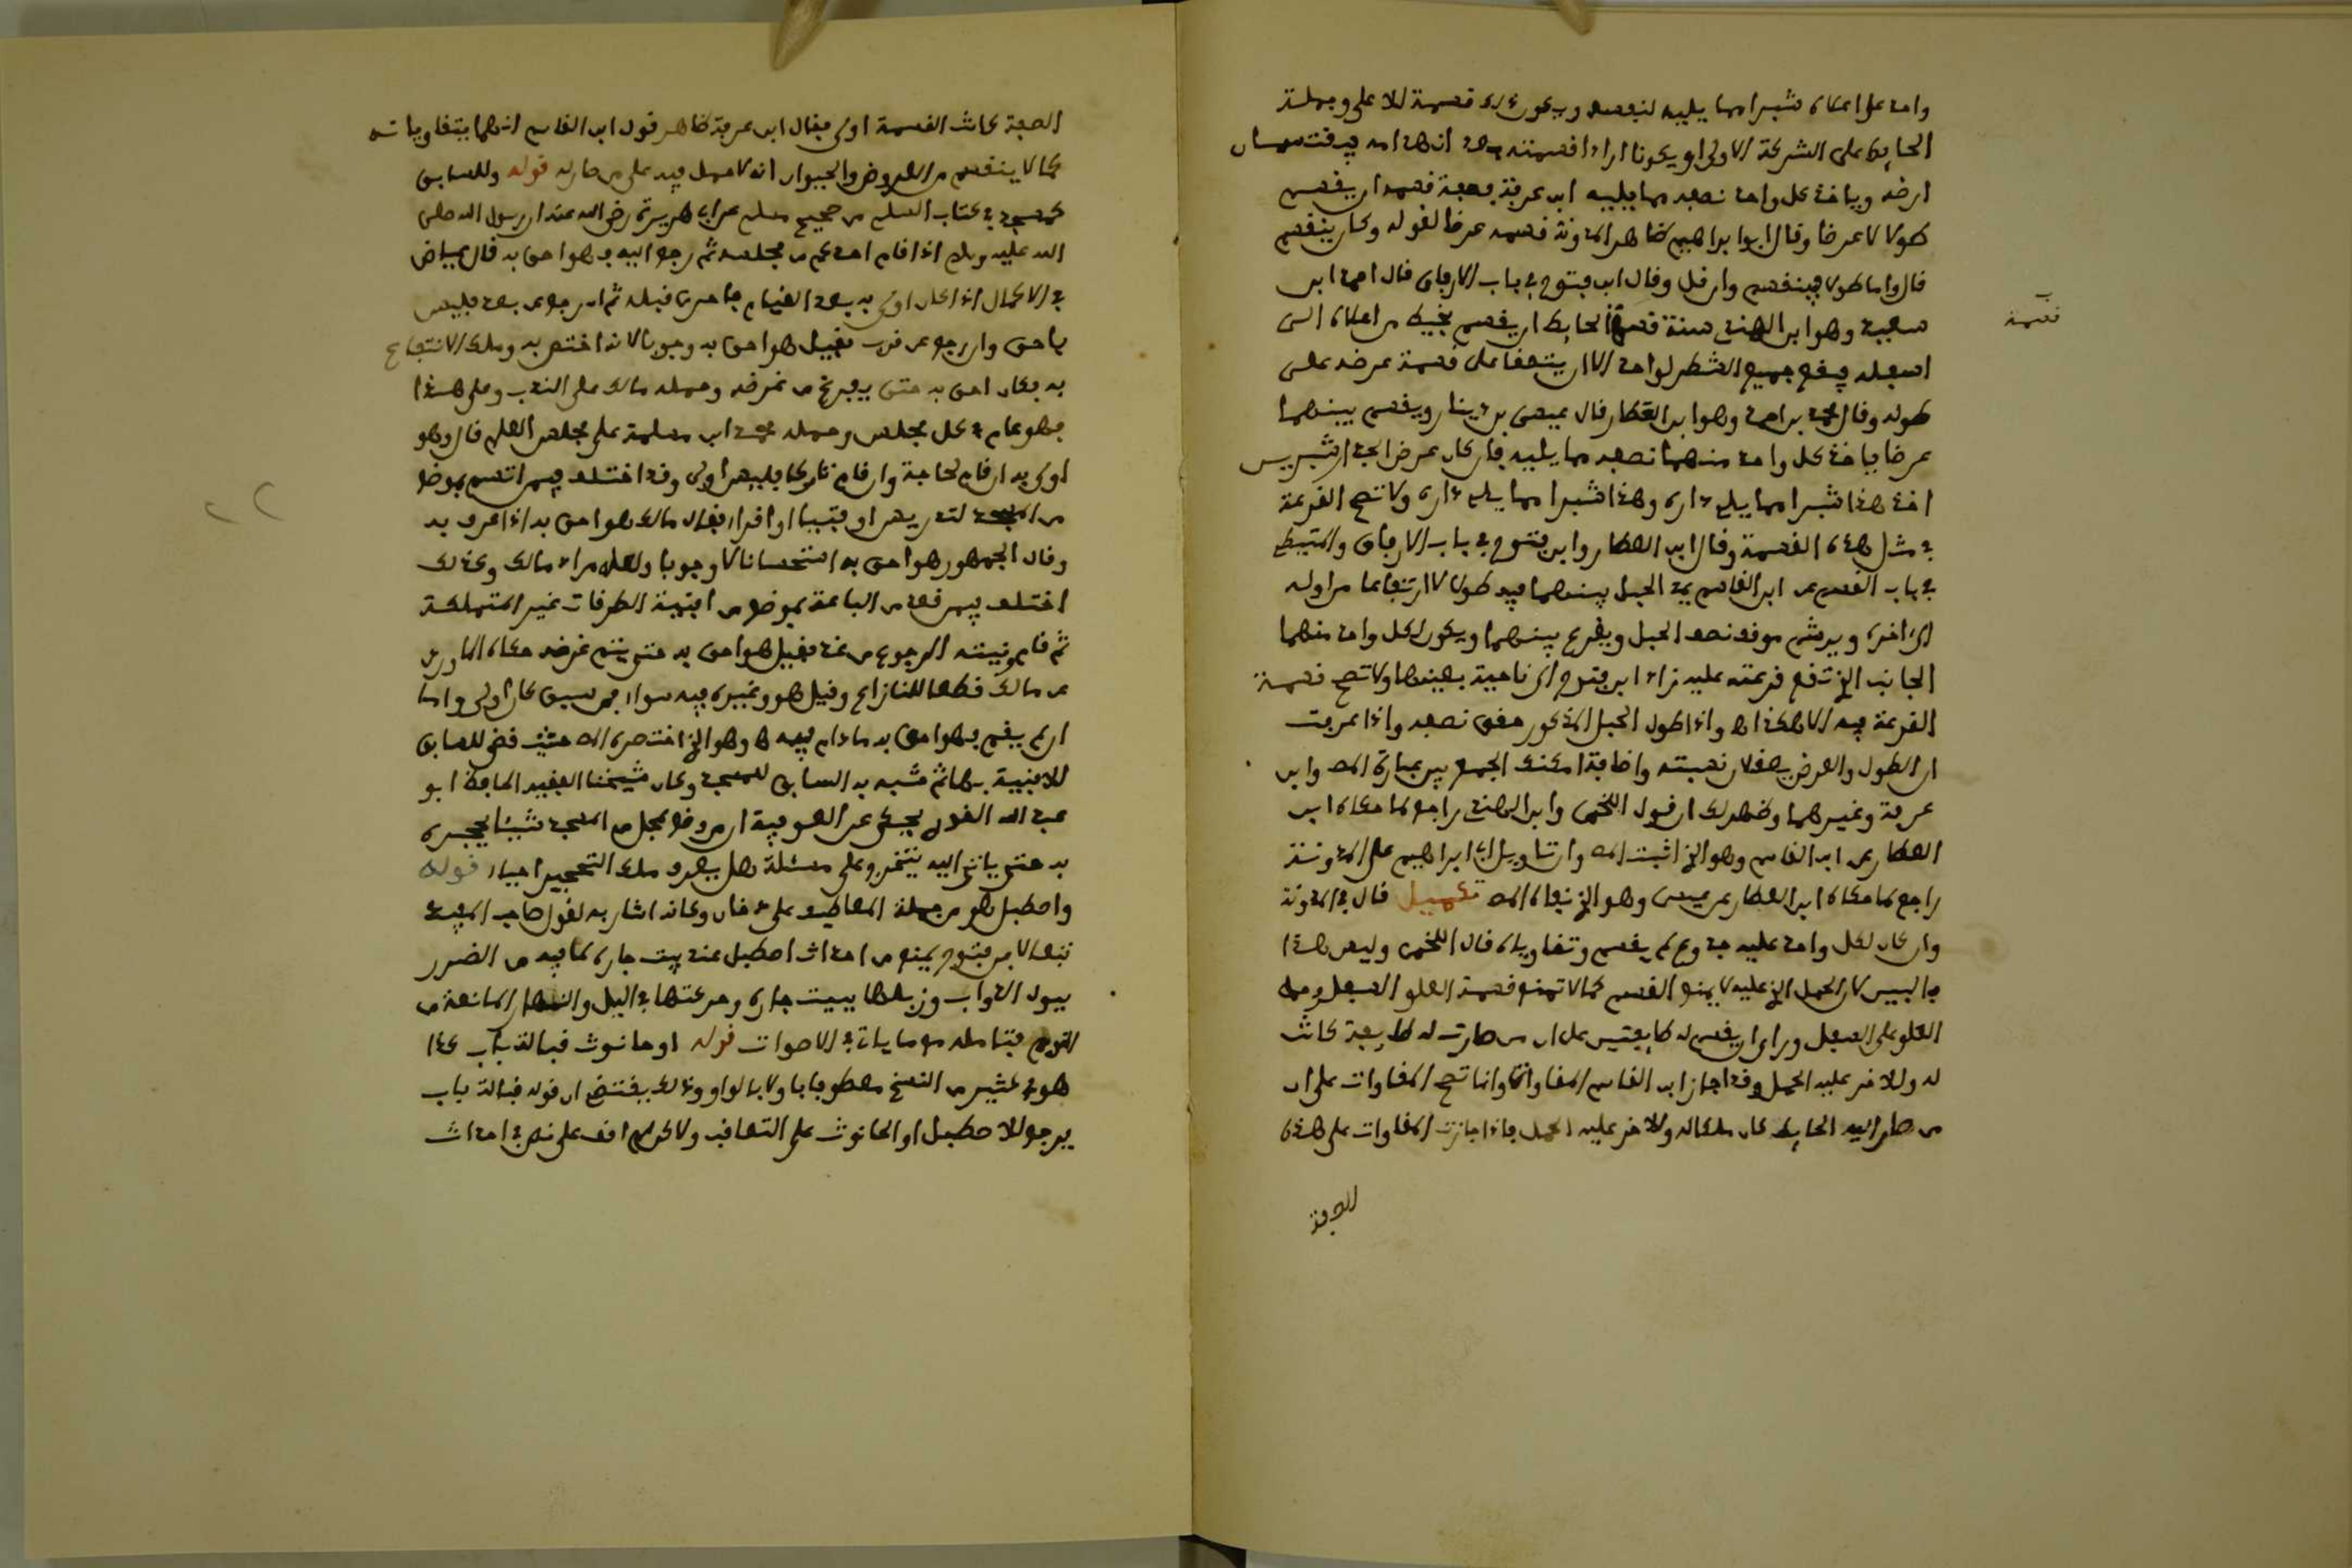 واحد على اعلاه شبرا مما يليه لنفسه ويكون ذلك قسمة للاعلى وجملة
الحايط على الشركة الاولى او يكونا ارادا قسمته بعد انهدامه فيقتسمان
ارضه وياخذ كل واحد نصفه مما يليه ابن عرفة بصفة قسمه ان يقسم
طولا لا عرضا وقال ابو ابراهيم ظاهر المدونة قسمه عرضا لقوله وكان ينقسم
قال واما طولا فينقسم وان قل وقال ابن فتوح في باب الارفاق قال احمد ابن
سعيد وهو ابن الهندي سنة قسمة الحايط ان يقسم بخيط من اعلاه الى
قسمة
اسفله فيقع جميع الشطر لواحد الا ان يتفقا على قسمة عرضه على
طوله وقال محمد بن احمد وهو ابن العطار قال عيسى بن دينار ويقسم بينهما
عرضا فياخذ كل واحد منهما نصفه مما يليه فان كان عرض الجدار شبرين
اخذ هذا شبرا مما يلي داره وهذا شبرا مما يلي داره ولا تصح القرعة
في مثل هذه القسمة وقال ابن العطار وابن فتوح في باب الارفاق والمتيطي
في باب القسم عن ابن القاسم يمد الحبل بينهما فيه طولا لا ارتفاعا من اوله
الى اخره ويرشم موقع نصف الحبل ويقرع بينهما ويكون لكل واحد منهما
الجانب الذي تقع قرعته عليه زاد ابن فتوح الى ناحية بعينها ولا تصح قسمة
القرعة فيه الا هكذا اهـ واذا طول الحبل المذكور حقق نصفه واذا عرفت
ان الطول والعرض يصفان نسبته واضافة امكنك الجمع بين عبارة المص وابن
عرفة وغيرهما وظهر لك ان قول اللخمي وابن الهندي راجع لما حكاه ابن
العطار عن ابن القاسم وهو الذي اثبت المص وان تاويل ابي ابراهيم على المدونة
راجع لما حكاه ابن العطار عن عيسى وهو الذي نفاه المص تكميل قال في المدونة
وان كان لكل واحد عليه جذوع لم يقسم وتقاوياه قال اللخمي وليس هذا
بالبين لان الحمل الذي عليه لا يمنع القسم كما لا تمنع قسمة العلو السفل وحمل
العلو على السفل وارى ان يقسم له طايفتين على ان من صارت له طايفة كانت
له وللاخر عليه الحمل وقد اجاز ابن القاسم المقاواة وانما تصح المقاوات على ان
من صار اليه الحايط كان ملكا له وللاخر عليه الحمل فاذا جازت المقاوات على هذه
الصفة
الصفة كانت القسمة اولى فقال ابن عرفة ظاهر قول ابن القاسم انهما يتقاويانه
كما لا ينقسم من العروض والحيوان انه لا حمل فيه على من صار له قوله وللسابق
كمسجد في كتاب السلم من صحيح مسلم عن ابي هريرة رضي الله عنه ان رسول الله صلى
الله عليه وسلم اذا قام احدكم من مجلسه ثم رجع اليه فهو احق به قال عياض
في الاكمال اذا كان اولى به بعد القيام فاحرى قبله ثم ان رجع عن بعد فليس
باحق وان رجع عن قرب فقيل هو احق به وجوبا لانه اختص به وملك الانتفاع
به فكان احق به حتى يفرغ من غرضه وحمله مالك على الندب وعلى هذا
فهو عام في كل مجلس وحمله محمد ابن مسلمة على مجلس العلم قال وهو
اولى به ان قام لحاجة وان قام تاركا فليس اولى وقد اختلف فيمن اتسم بموضع
من المسجد لتدريس او فتيا او اقرار فقال مالك هو احق به اذا عرف به
وقال الجمهور هو احق به استحسانا لا وجوبا ولعله مراد مالك وكذلك
اختلف فيمن قعد من الباعة بموضع من افنية الطرقات غير المتملكة
ثم قام ونيته الرجوع من غد فقيل هو احق به حتى يتم غرضه حكاه الماوردي
عن مالك قطعا للنزاع وقيل هو وغيره فيه سواء فمن سبق كان اولى واما
ان لم يقم فهو احق به ما دام فيه اهـ وهو الذي اختصره المص حيث قضى للسابق
للافنية بها ثم شبه به السابق للمسجد وكان شيخنا الفقيه الحافظ ابو
عبد الله القوري يحكي عن الصوفية ان من وضع بمحل من المسجد شيئا يحجره
به حتى ياتي اليه يتخرج على مسئلة هل يعد ملك التحجير احياء قوله
واصطبل هو من جملة المعاطيف على دخان وكانه اشار به لقول صاحب المفيد
نبهالا بن فتوح يمنع من احداث اصطبل عند بيت جاره لما فيه من الضرر
ببول الدواب وزبلها ببيت جاره وحركتها في اليل والنهار المانعة من
النوم فتامله مع ما ياتي في الاصوات قوله او حانوت قبالة باب كذا
هو في كثير من النسخ معطوفا باو لا بالواو وذلك يقتضي ان قوله قبالة باب
يرجع للاصطبل او الحانوت على التعاقب ولاكن لم اقف على نص في احداث